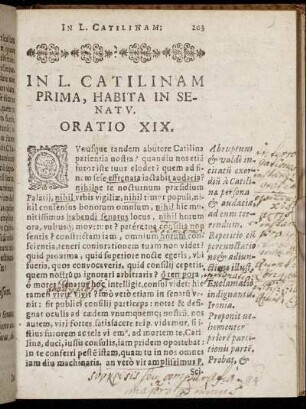 IN L. CATILINAM: 203
IN L. CATILINAM
PRIMA, HABITA IN SE-
NATV.
ORATIO XIX.
QVousque tandem abutere Catilina
patientia nostra? quamdiu nos etiã
furor iste tuus eludet? quem ad fi-
nem sese effrenata iactabit audacia?
nihilne te nocturnum præsidium
Palatij, nihil vrbis vigiliæ, nihil timor populi, ni-
hil consensus bonorum omnium, nihil hic mu-
nitissimus habendi senatus locus, nihil horum
ora, vultusq; mouerunt? patere tua consilia non
sentis? constrictam iam, omnium horum con-
scientia, teneri coniurationem tuam non vides?
quid proxima, quid superiore nocte egeris, vbi
fueris, quos conuocaueris, quid consilij ceperis,
quem nostrûm ignorare arbitraris? ô tempora
ô mores, senatus hoc intelligit, consul videt: hic
tamen viuit. viuit? immo verò etiam in senatum ve-
nit: fit publici consilij particeps: notat & desig-
nat oculis ad cædem vnumquemque nostrû, nos
autem, viri fortes satisfacere reip. videmur, si
istius furorem ac tela vitemus. ad mortem te, Cati-
lina, duci, iussu consulis, iam pridem oportebat:
in te conferri pestẽ istam, quam tu in nos omnes
iam diu machinaris. an verò vir amplissimus P.
Sci-
Abruptum
& valdi in-
citatũ exor-
diũ à Catili-
na persona
& audacia,
ad eum ter-
rendum.
Repetitio cũ
Exclamatio
indignantis,
Proponit ve-
hementer
priorẽ par-
titionis partẽ.
Probat, &